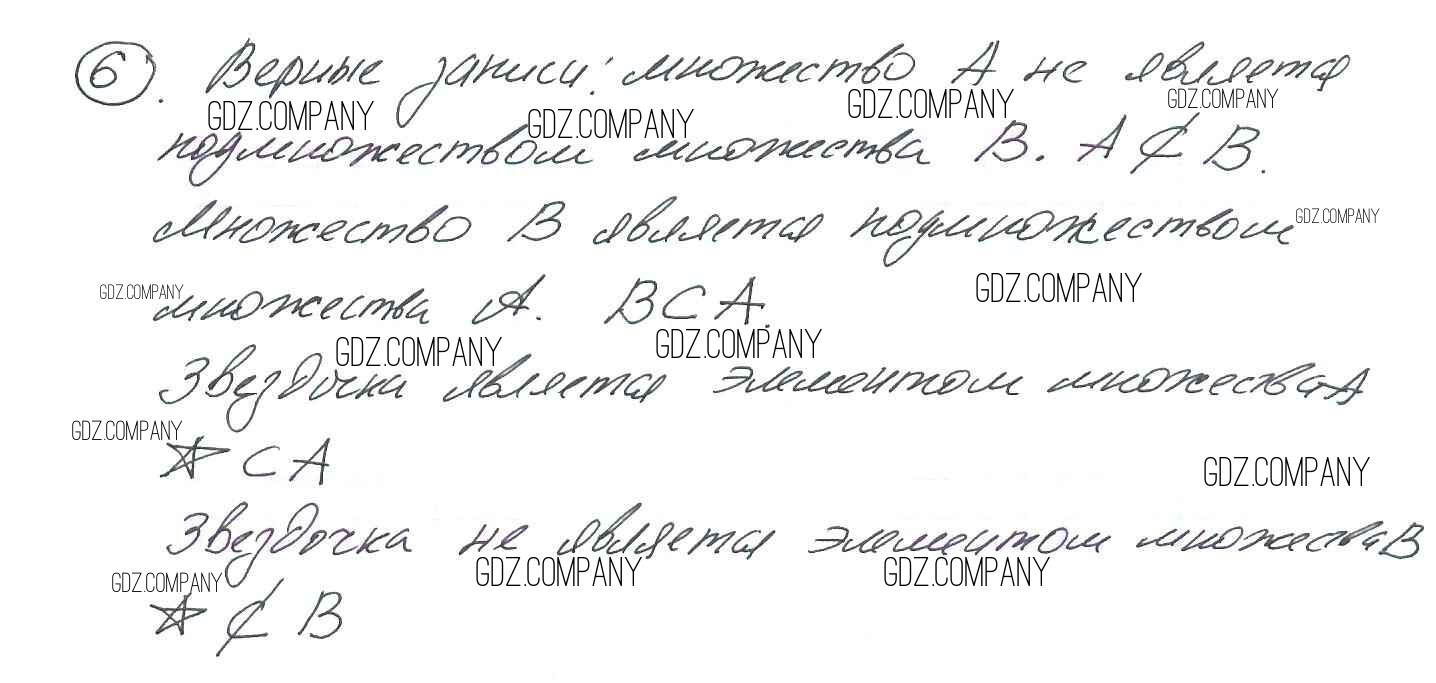 6. Верные записи: множество А не является
GDZ.COMPANY GDZ.COMPANY GDZ.COMPANY GDZ.COMPANY
подмножеством множества В. А ⊄ В.
Множество В является подмножеством GDZ.COMPANY
GDZ.COMPANY множества А. В ⊂ А. GDZ.COMPANY
GDZ.COMPANY GDZ.COMPANY
Звездочка является элементом множества А
GDZ.COMPANY
☆ ⊂ А GDZ.COMPANY
Звездочка не является элементом множества В
GDZ.COMPANY GDZ.COMPANY GDZ.COMPANY
☆ ⊄ В